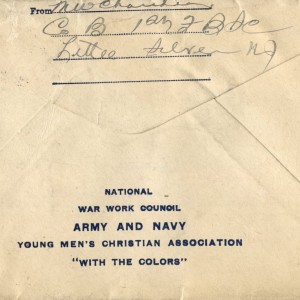 From
C B
Little Silver NJ
NATIONAL
WAR WORK COUNCIL
ARMY AND NAVY
YOUNG MEN'S CHRISTIAN ASSOCIATION
"WITH THE COLORS"